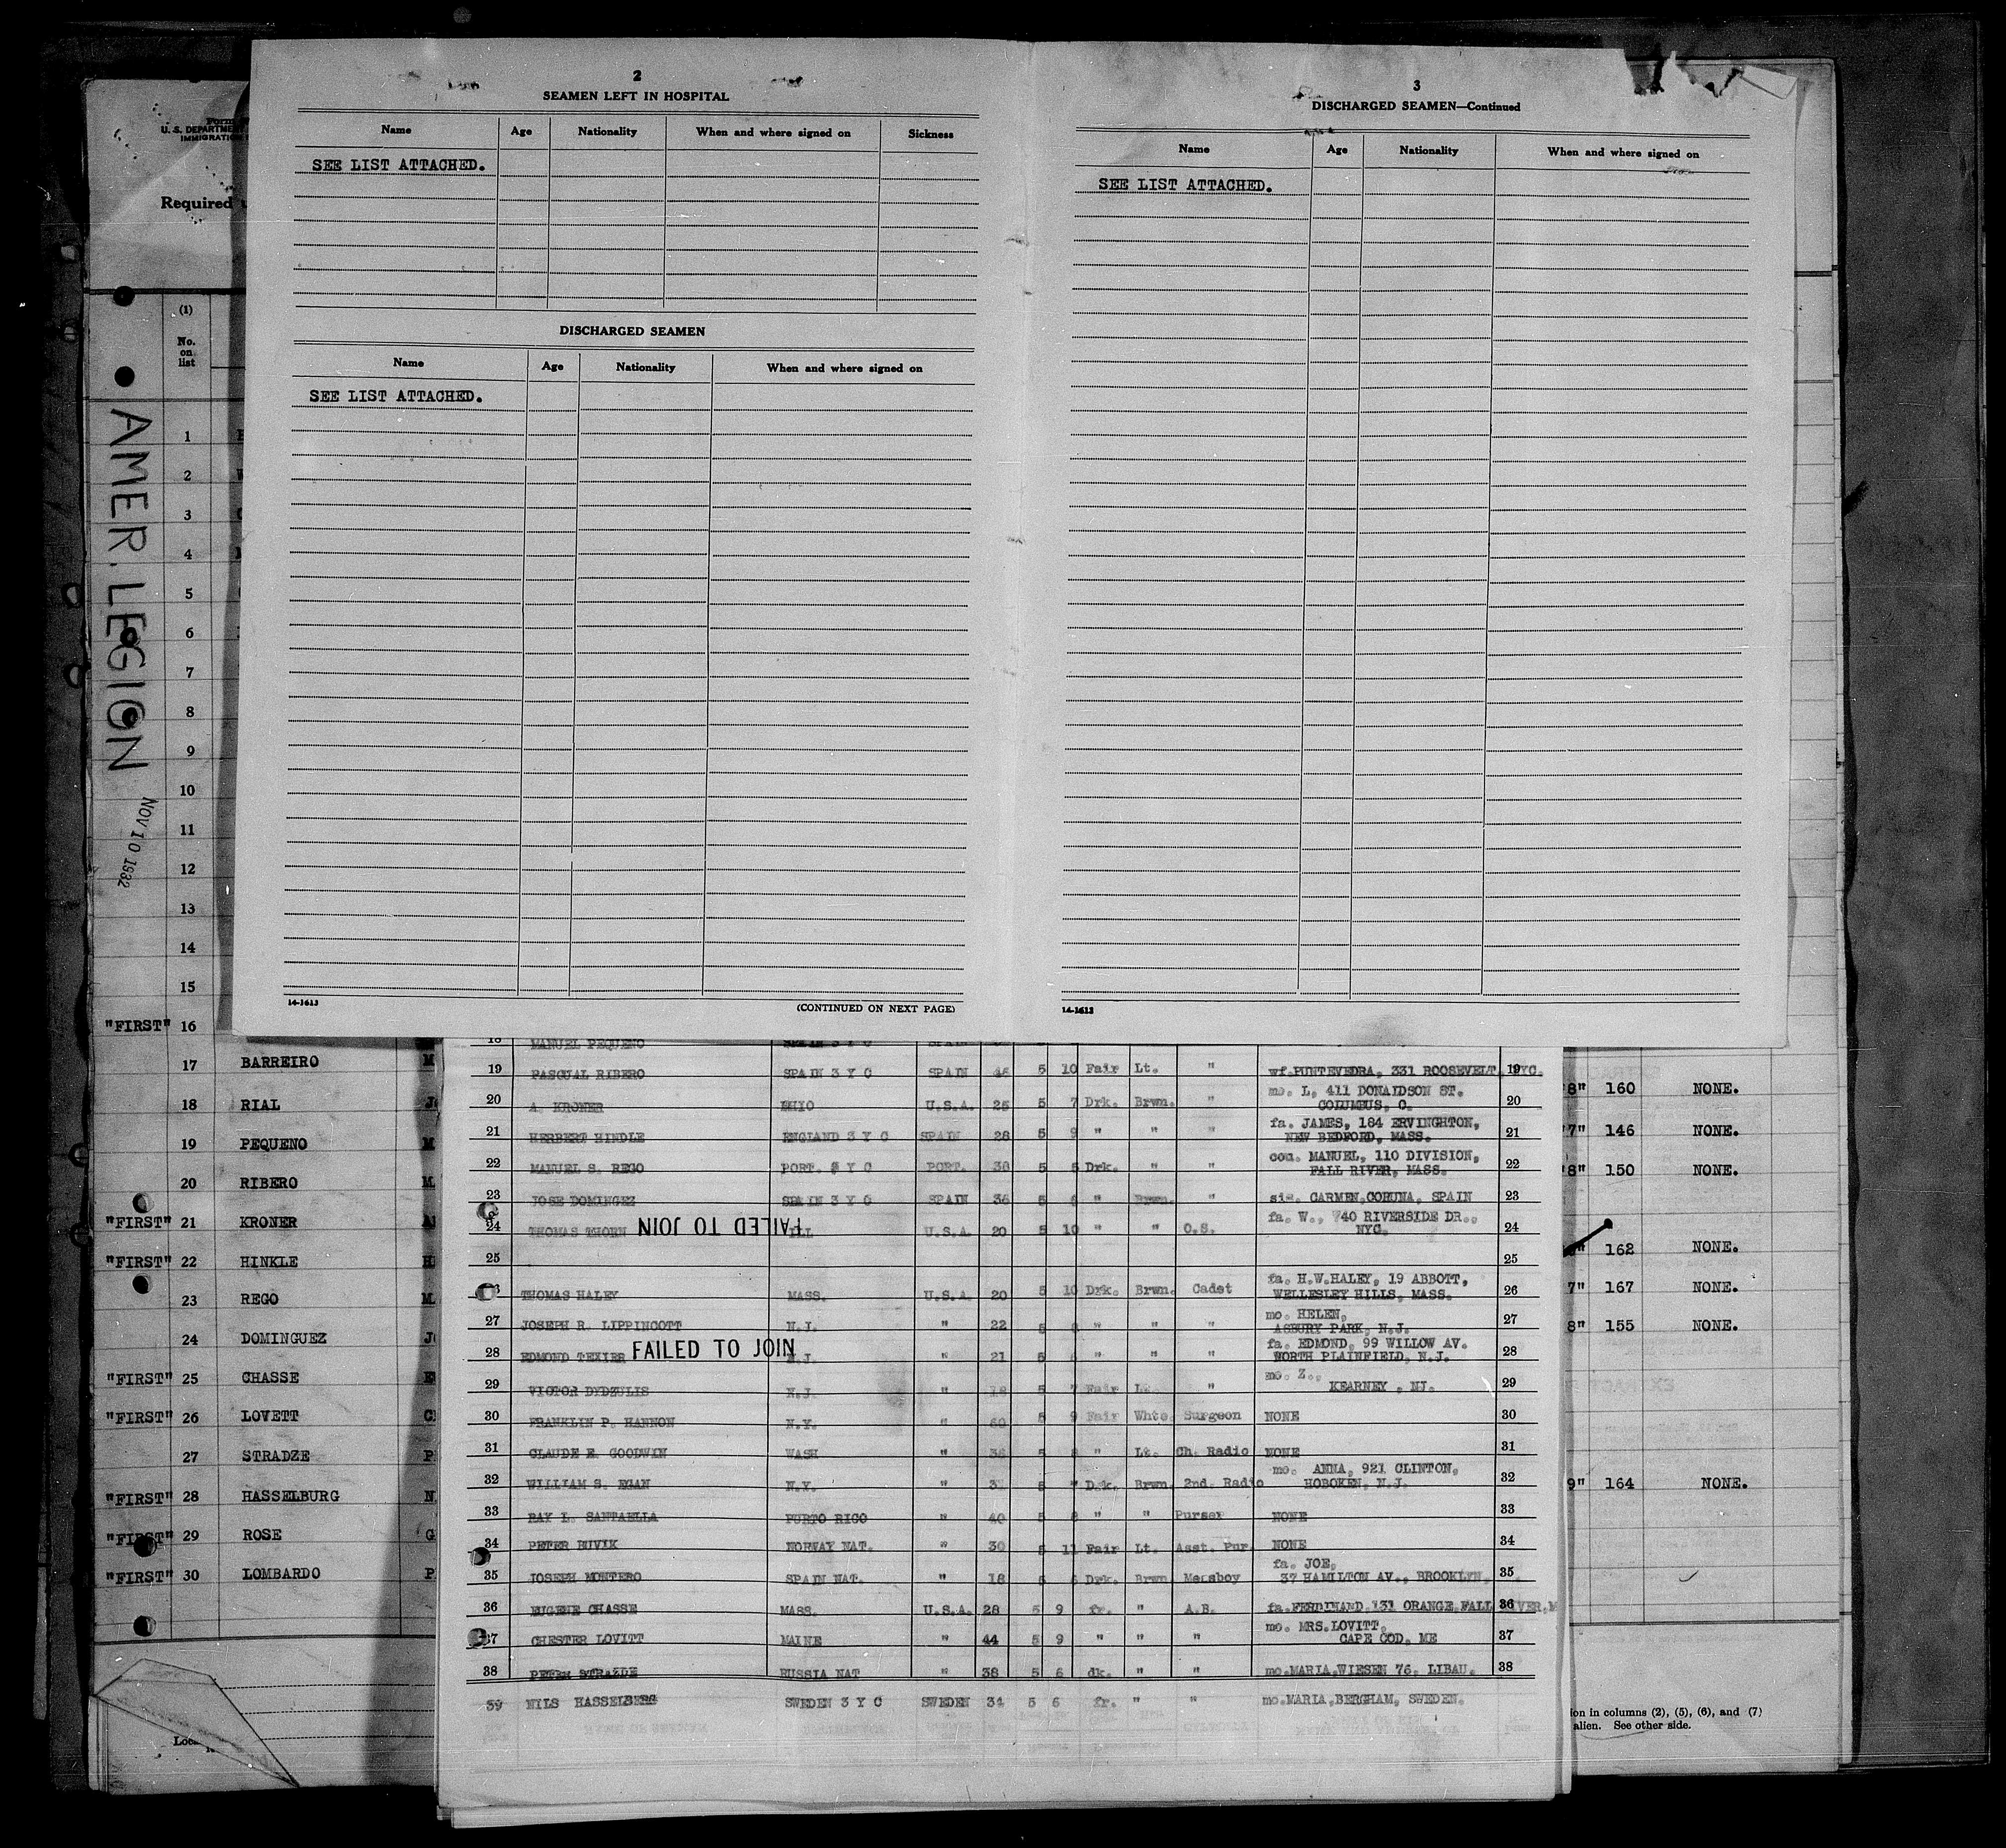 2
SEAMEN LEFT IN HOSPITAL
Name Age Nationality When and where signed on Sickness
SEE LIST ATTACHED.
DISCHARGED SEAMEN
Name Age Nationality When and where signed on
SEE LIST ATTACHED.
14-1613 (CONTINUED ON NEXT PAGE)
3
DISCHARGED SEAMEN—Continued
Name Age Nationality When and where signed on
SEE LIST ATTACHED.
14-1613
Form
U. S. DEPARTME
IMMIGRATION
Required
(1)
No.
on
list
AMER. LEGION
NOV 10 1932
1
2
3
4
5
6
7
8
9
10
11
12
13
14
15
"FIRST" 16
17 BARREIRO M
18 RIAL J
19 PEQUENO M
20 RIBERO M.
"FIRST" 21 KRONER
"FIRST" 22 HINKLE H
23 REGO M.
24 DOMINGUEZ J
"FIRST" 25 CHASSE
"FIRST" 26 LOVETT C
27 STRADZE P
"FIRST" 28 HASSELBURG N
"FIRST" 29 ROSE G
"FIRST" 30 LOMBARDO P
18 MANUEL PEQUENO SPAIN 3 Y C SPAIN
19 PASCUAL RIBERO SPAIN 3 Y C SPAIN 46 5 10 Fair Lt. " wf.PUNTEVEDRA, 331 ROOSEVELT, NYC. 19
20 A. KRONER OHIO U.S.A. 25 5 7 Drk. Brwn. " mo. L, 411 DONALDSON ST.
COLUMBUS, O. 20
21 HERBERT HINDLE ENGLAND 3 Y C SPAIN 28 5 9 " " " fa. JAMES, 184 ERVINGHTON,
NEW BEDFORD, MASS. 21
22 MANUEL S. REGO PORT. 3 Y C PORT. 38 5 5 Drk. " " cou. MANUEL, 110 DIVISION,
FALL RIVER, MASS. 22
23 JOSE DOMINGEZ SPAIN 3 Y C SPAIN 36 5 6 " Brwn. " sis. CARMEN,CORUNA, SPAIN 23
24 THOMAS THORN FAILED TO JOIN ILL U.S.A. 20 5 10 " " O.S. fa. W., 740 RIVERSIDE DR.,
NYC. 24
25 25
THOMAS HALEY MASS. U.S.A. 20 5 10 Drk. Brwn. Cadet fa. H.W.HALEY, 19 ABBOTT,
WELLESLEY HILLS, MASS. 26
27 JOSEPH R. LIPPINCOTT N.J. " 22 5 8 " " " mo. HELEN,
ASBURY PARK, N.J. 27
28 EDMOND TEXIER FAILED TO JOIN N.J. " 21 5 " " " fa. EDMOND, 99 WILLOW AV.
NORTH PLAINFIELD, N.J. 28
29 VICTOR DYDZULIS N.J. " 18 5 7 Fair Lt. " mo. Z.,
KEARNEY , NJ. 29
30 FRANKLIN P. HANNON N.Y. " 60 5 9 Fair Whte. Surgeon NONE 30
31 CLAUDE E. GOODWIN WASH " 36 5 8 " Lt. Ch. Radio NONE 31
32 WILLIAM S. EGAN N.Y. " 5 7 Drk. Brwn. 2nd. Radio mo. ANNA, 921 CLINTON,
HOBOKEN, N.J. 32
33 RAY L. SANTAELLA PURTO RICO " 40 5 8 " " Purser NONE 33
34 PETER RUVIK NORWAY NAT. " 30 5 11 Fair Lt. Asst. Pur. NONE 34
35 JOSEPH MONTERO SPAIN NAT. " 18 5 6 Drk. Brwn Messboy fa. JOE,
37 HAMILTON AV., BROOKLYN. 35
36 EUGENE CHASSE MASS. U.S.A. 28 5 9 fr. " A.B. fa.FERDINAND,131 ORANGE FALL RIVER,M 36
37 CHESTER LOVITT MAINE " 44 5 9 " " " mo. MRS.LOVITT,
CAPE COD, ME 37
38 PETER STRAZDE RUSSIA NAT " 38 5 6 dk. " " mo.MARIA,WIESEN 76, LIBAU. 38
39 NILS HASSELBERG SWEDEN 3 Y C SWEDEN 34 5 6 fr. " " mo.MARIA,BERGHAM, SWEDEN.
8" 160 NONE.
7" 146 NONE.
8" 150 NONE.
162 NONE.
7" 167 NONE.
8" 155 NONE.
9" 164 NONE.
ion in columns (2), (5), (6), and (7)
alien. See other side.